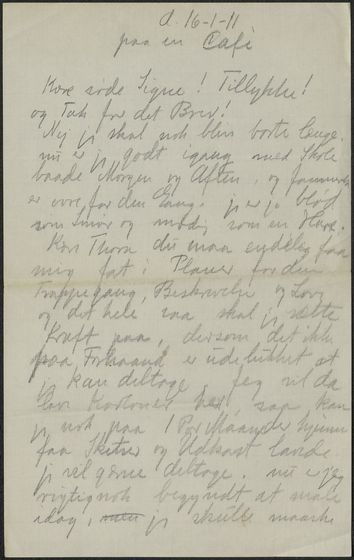 d. 16-1-11
paa en Café
Kære søde Signe! Tillykke!
og Tak for det Brev!
Nej jeg skal nok blive borte længe.
nu er jeg godt igang med Skole
baade Morgen og Aften, og
er ovre for den Gang. jeg er jo blød
som Smør og modig som en Hare.
Kære Thora du maa endelig faa
mig fat i Planer for den
Trappegang, Beskrivelse og Lov
og det hele saa skal jeg sætte
Kraft paa, dersom det ikke
paa Forhaand er udelukket at
jeg kan deltage. Jeg vil da
lave Kartoner her, saa kan
jeg nok paa 1 Par Maaneder hjemme
faa Skitser og Udkast lavede.
jeg vil gerne deltage. nu er jeg
rigtignok begyndt at male
idag, men jeg skulle maaske